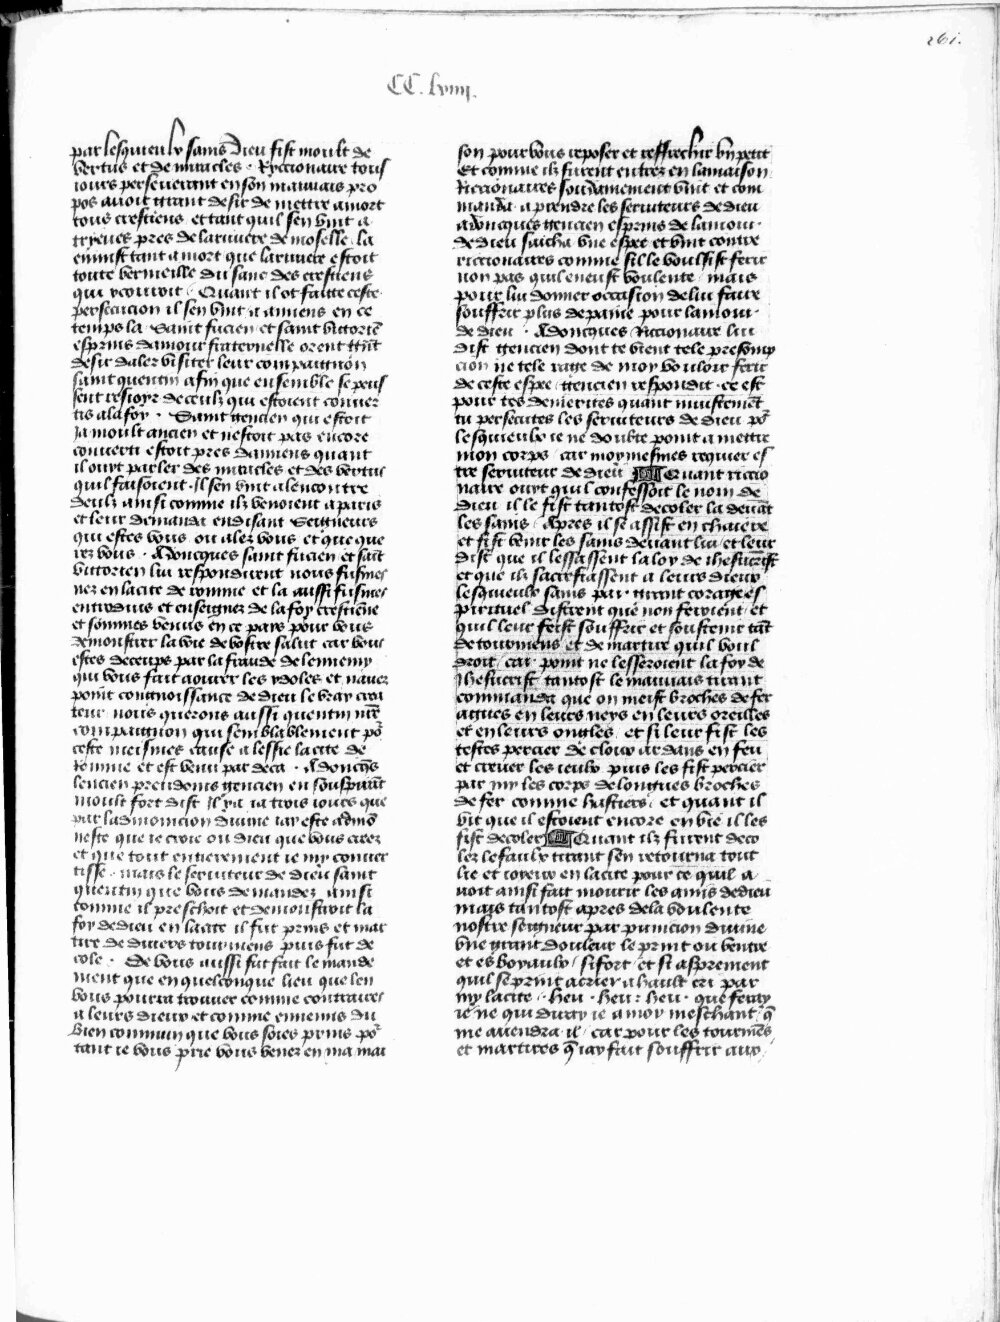 261.
CC. lviiij.
par lesquieulx sains Dieu fist moult de
vertus et de miracles . Ryccionaire tous
iours perseuerant en son mauuais pro
pos auoit grant desir de mettre a mort
tous crestiens et tant quil sen vint a
trieues pres de la riuiere de moselle . la
en mist tant a mort que la riuiere estoit
toute vermeille du sanc des crestiens
qui y couroit . Quant il ot faitte ceste
persecucion il sen vint a amiens en ce
temps la Saint fucien et saint victoriẽ
esprins damour fraternelle orent grãt
desir daler visiter leur compaignon
saint quentin afin que ensemble se peus
sent resioyr de ceulx qui estoient conuer
tis a la foy . Saint gencien qui estoit
ja moult ancien et nestoit pas encore
conuerti estoit pres damiens quant
il ouyt parler des miracles et des vertus
quil faisoient . Il sen vint a lencontre
deulx ainsi comme ilz venoient a paris
et leur demanda en disant Seigneurs
qui estes vous ou alez vous et que que
rez vous . Adoncques saint fucien et saĩt
victorien lui respondirent nous fusmes
nez en la cite de romme et la aussi fusmes
entroduis et enseignez de la foy crestiẽne
et sommes venus en ce pays pour vous
demonstrer la voie de vostre salut car vous
estes deceups par la fraude de lennemy
qui vous fait aourer les ydoles et nauez
point congnoissance de dieu le vray crea
teur nous querons aussi quentin nr̃e
compaignon qui semblablement põ
ceste meismes cause a lessie la cite de
romme et est venu par deca . Adoncq̃s
lencien preudoms gencien en souspirãt
moult fort dist Il y a ia trois iours que
par ladmonicion diuine iay este admõ
neste que ie croie ou dieu que vous creez
et que tout entierement ie my conuer
tisse . mais le seruiteur de dieu saint
quentin que vous demandez ainsi
comme il preschoit et demonstroit la
foy de dieu en la cite il fut prins et mar
tire de diuers tourmens puis fut de
cole . De vous aussi fut fait le mande
ment que en quelconque lieu que len
vous pourra trouuer comme contraires
a leurs dieux et comme ennemis du
bien commun que vous soies prins põ
tant ie vous prie vous venez en ma mai
son pour vous reposer et reffreschir vn petit
Et comme ilz furent entrez en la maison
Riccionaires soudainement vint et com
manda a prendre les seruiteurs de dieu
adoncques gencien esprins de lamour
de dieu saicha vne espee et vint contre
riccionaires comme sil le voulsist ferir
non pas quil en eust voulente mais
pour lui donner occasion de lui faire
souffrir plus de paine pour lamour
de dieu . Adoncques Riccionaire lui
dist gencien dont te vient tele presomp
cion ne tele rage de moy vouloir ferir
de ceste espee gencien respondit . ce est
pour tes demerites quant iniustemẽt
tu persecutes les seruiteurs de dieu põ
lesquieulx ie ne doubte point a mettre
mon corps car moy mesmes requier es
tre seruiteur de dieu Quant riccio
naire ouyt quil confessoit le nom de
dieu il le fist tantost decoler la deuãt
les sains . Apres il se assist en chaiere
et fist venir les sains deuant lui et leur
dist que il lessassent la loy de ihesucrist
et que ilz sacrefiassent a leurs dieux
lesquieulx sains par grant corage es
pirituel distrent que non feroient et
quil leur feist souffrir et soustenir tãt
de tourmens et de martire quil voul
droit car point ne lesseroient la foy de
Ihesucrist tantost le mauuais tirant
commanda que on meist broches de fer
agues en leurs neys en leurs oreilles
et en leurs ongles et si leur fist les
testes percier de cloux ardans en feu
et creuer les ieulx puis les fist percier
par my les corps de longues broches
de fer comme hastiers et quant il
vit que il estoient encore en vie il les
fist decoler Quant ilz furent deco
lez le faulx tirant sen retourna tout
lie et ioyeux en la cite pour ce quil a
uoit ainsi fait mourir les amis de dieu
mais tantost apres de la voulente
nostre seigneur par punicion diuine
vne grant douleur le print ou ventre
et es boyaulx si fort et si asprement
quil se print a crier a hault cri par
my la cite . heu . heu : heu . que feray
ie ne qui diray ie a moy meschant q̃
me auendra il . car pour les tourmẽs
et martires q̃ iay fait souffrir aux